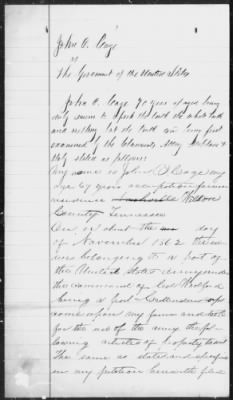 John O. Cage
vs
The Government of the United States
John O. Cage 70 years of age being
duly sworn to speak the truth the whole truth
and nothing but the truth on being first
examined by the Claimants Atty
duly states as follows:
My name is John O Cage my
age 69 years occupation farmer
residence Nashville Wilson
County Tennessee
On or about the day
of November 1862 there
belonging to a part of
the United States army under
the command of Col Wolford
being a part
come upon my farm and took
for the use of the army the fol
lowing articles of property to wit
The same as stated and specified
in my petition herewith filed